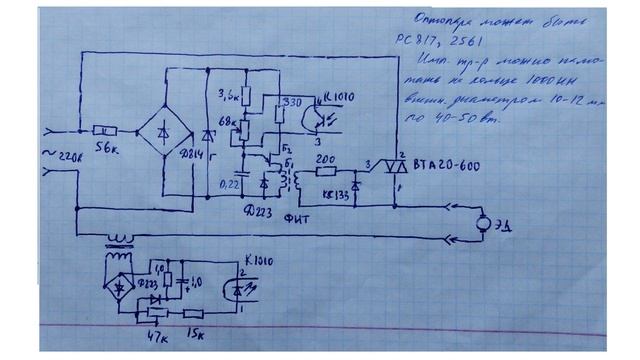 Оптопара может быть
PC817, 2561
Имп. тр-р можно намо-
тать на кольце 1000НН
внешн. диаметром 10-12 мм
по 40-50 вт.
3,6к
330
К1010
4
68к
3
Б2
56к
Д814
~220в
0,22
Б1
200
3
2
ВТА20-600
1
КС133
Д223
ФИТ
ЭД
К1010
Д223
1,0
1,0
2
1
47к
15к